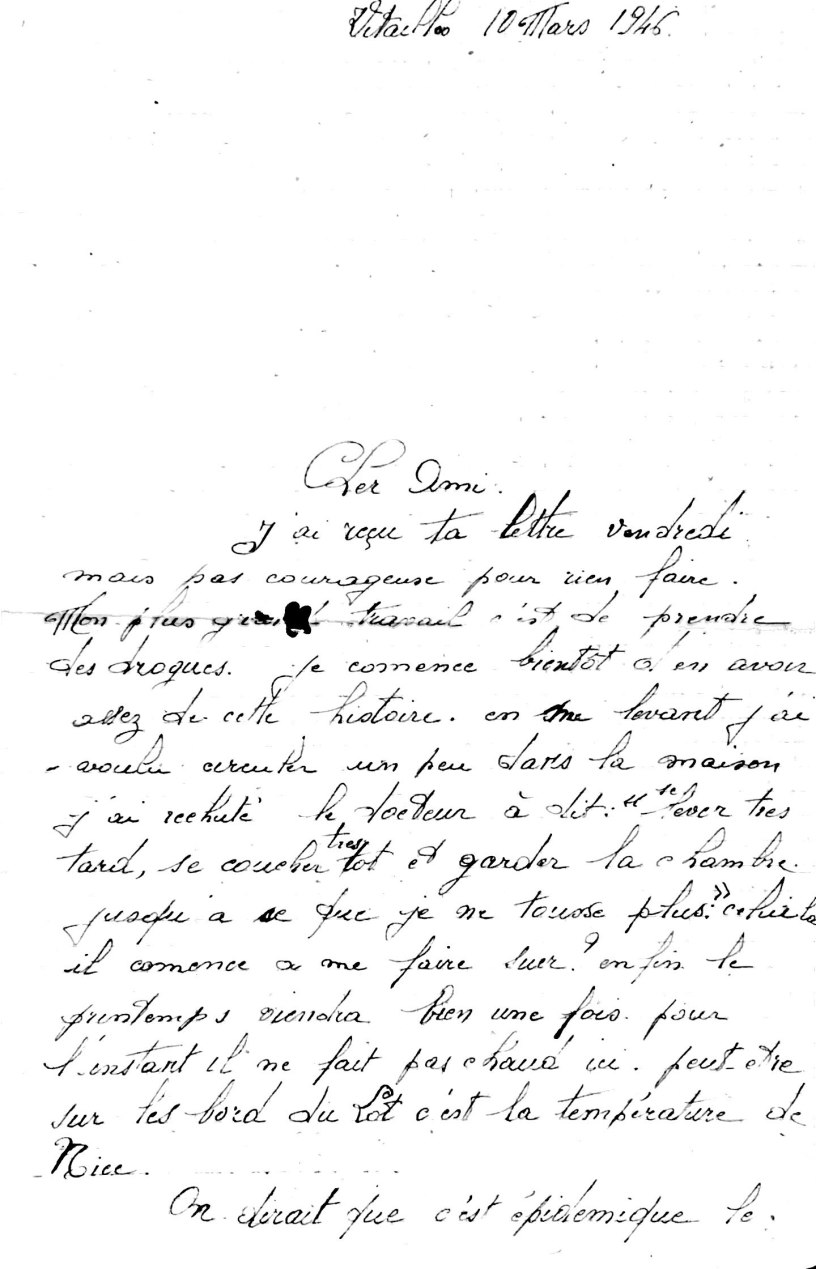 10 Mars 1946
Cher Ami.
J'ai reçu ta lettre vendredi
mais pas courageuse pour rien faire.
Mon plus grand travail c'est de prendre
des drogues. Je comence bientôt d'en avoir
assez de cette histoire. en me levant j'ai
voulu circuler un peu dans la maison
j'ai rechuté le docteur à dit: "se lever tres
tard, se coucher tres tot et garder la chambre.
jusqu'a ce que je ne tousse plus:" celui la
il comence a me faire suer? enfin le
printemps viendra bien une fois. pour
l'instant il ne fait pas chaud ici. peut-etre
sur les bord du Lot c'est la température de
Nice.
On dirait que c'est épidemique le.